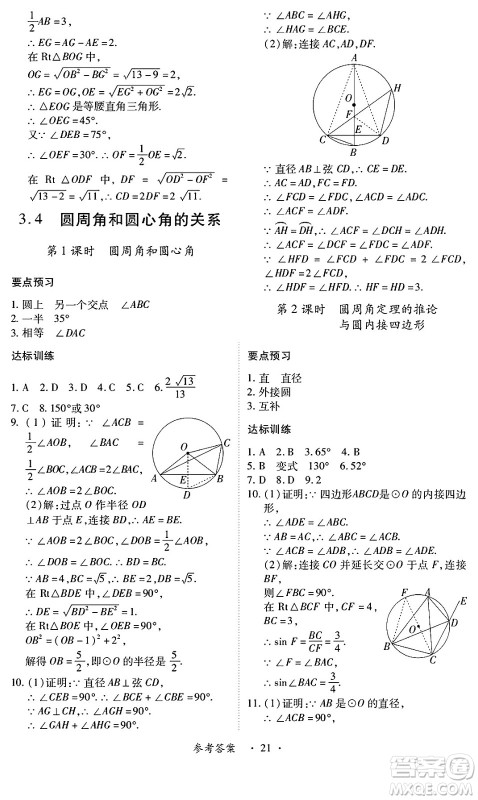 1/2 AB=3,
∴ EG=AG-AE=2.
在 Rt△BOG 中,
OG=√(OB²-BG²)=√(13-9)=2,
∴ EG=OG,OE=√(EG²+OG²)=2√2.
∴ △EOG 是等腰直角三角形.
∴ ∠OEG=45°.
又∵ ∠DEB=75°,
∴ ∠OEF=30°. ∴ OF=1/2 OE=√2.
在 Rt △ODF 中, DF = √(OD²-OF²) =
√(13-2)=√11,∴ CD=2DF=2√11.
3.4 圆周角和圆心角的关系
第1课时 圆周角和圆心角
要点预习
1. 圆上 另一个交点 ∠ABC
2. 一半 35°
3. 相等 ∠DAC
达标训练
1. A 2. D 3. D 4. C 5. C 6. 2√13/13
7. C 8. 150°或30°
9. (1) 证明:∵ ∠ACB =
1/2 ∠AOB, ∠BAC =
1/2 ∠BOC,∠ACB=2∠BAC,
∴ ∠AOB=2∠BOC.
(2)解:过点 O 作半径 OD
⊥AB 于点 E,连接 BD.
∵ ∠AOB=2∠BOC,∠AOB=2∠DOB,
∴ ∠DOB=∠BOC. ∴ BD=BC.
∵ AB=4,BC=√5,∴ BE=2,BD=√5.
∴ DE=√(BD²-BE²)=1.
在 Rt△BOE 中,∠OEB=90°,
OB²=(OB-1)²+2²,
解得 OB=5/2,即⊙O 的半径是5/2.
10. (1)证明:∵ 直径 AB⊥弦 CD,
∴ ∠CEB=90°.
∴ ∠ABC+∠BCE=90°.
∵ AG⊥CH,∴ ∠CGA=90°.
∴ ∠GAH+∠AHG=90°.
∵ ∠ABC=∠AHG,
∴ ∠BCE=∠GAH.
(2)解:连接 AC,AD,DH,
A
H
O
F
C
E
D
B
∵ 直径 AB⊥弦 CD,
∴ AC=AD,FC=FD.
∴ ∠FCD = ∠FDC, ∠ACD =
∠ADC.
∴ ∠ACF=∠ADF.
∵ AH=DH,∴ ∠ACH=∠HCD.
∵ ∠HFD = ∠FCD + ∠FDC =
2∠FCD, ∠HDF = ∠HDA +
∠ADF=2∠HCD,
∴ ∠HDF=∠HFD.
∴ HF=HD.
第2课时 圆周角定理的推论
与圆内接四边形
要点预习
1. 直 直径
2. 外接圆
3. 互补
达标训练
1. A 2. B 3. 65° 4. B
5. B 变式 130° 6.52°
7. D 8. D 9. 2
10. (1)证明:∵ 四边形ABCD是⊙O 的内接四边
形,
∴ ∠ADE=∠ABC.
∵ AB=AC,∴ ∠ABC=∠ACB.
∴ ∠ADE=∠ACB.
(2)解:连接 CO 并延长交⊙O 于点 F,连接
BF,
则∠FBC=90°.
在 Rt△BCF 中,CF=4,
BC=3,
∴ sin F=BC/CF=3/4.
∵ ∠F=∠BAC,
∴ sin∠BAC=3/4.
11. (1)证明:∵ AB 是⊙O 的直径,
∴ ∠ACB=90°.
参考答案 · 21 ·